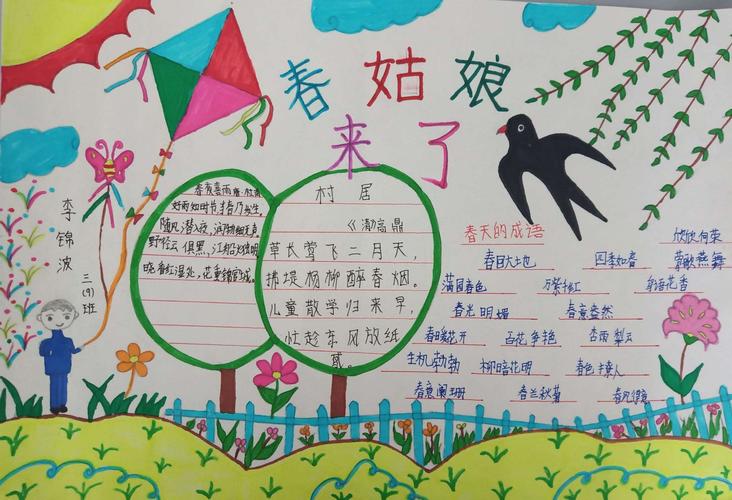 春姑娘
来了
李锦波
三(9)班
春夜喜雨
好雨知时节
随风潜入夜，润物细无声
野径云俱黑，江船火独明
晓看红湿处，花重锦官城。
村居
草长莺飞二月天，
拂堤杨柳醉春烟。
儿童散学归来早，
忙趁东风放纸
鸢。
春天的成语
欣欣向荣
春回大地 四季如春 莺歌燕舞
满园春色 万紫千红 鸟语花香
春光明媚 春意盎然
春暖花开 百花争艳 杏雨梨云
生机勃勃 柳暗花明 春色撩人
春意阑珊 春兰秋菊 春风得意